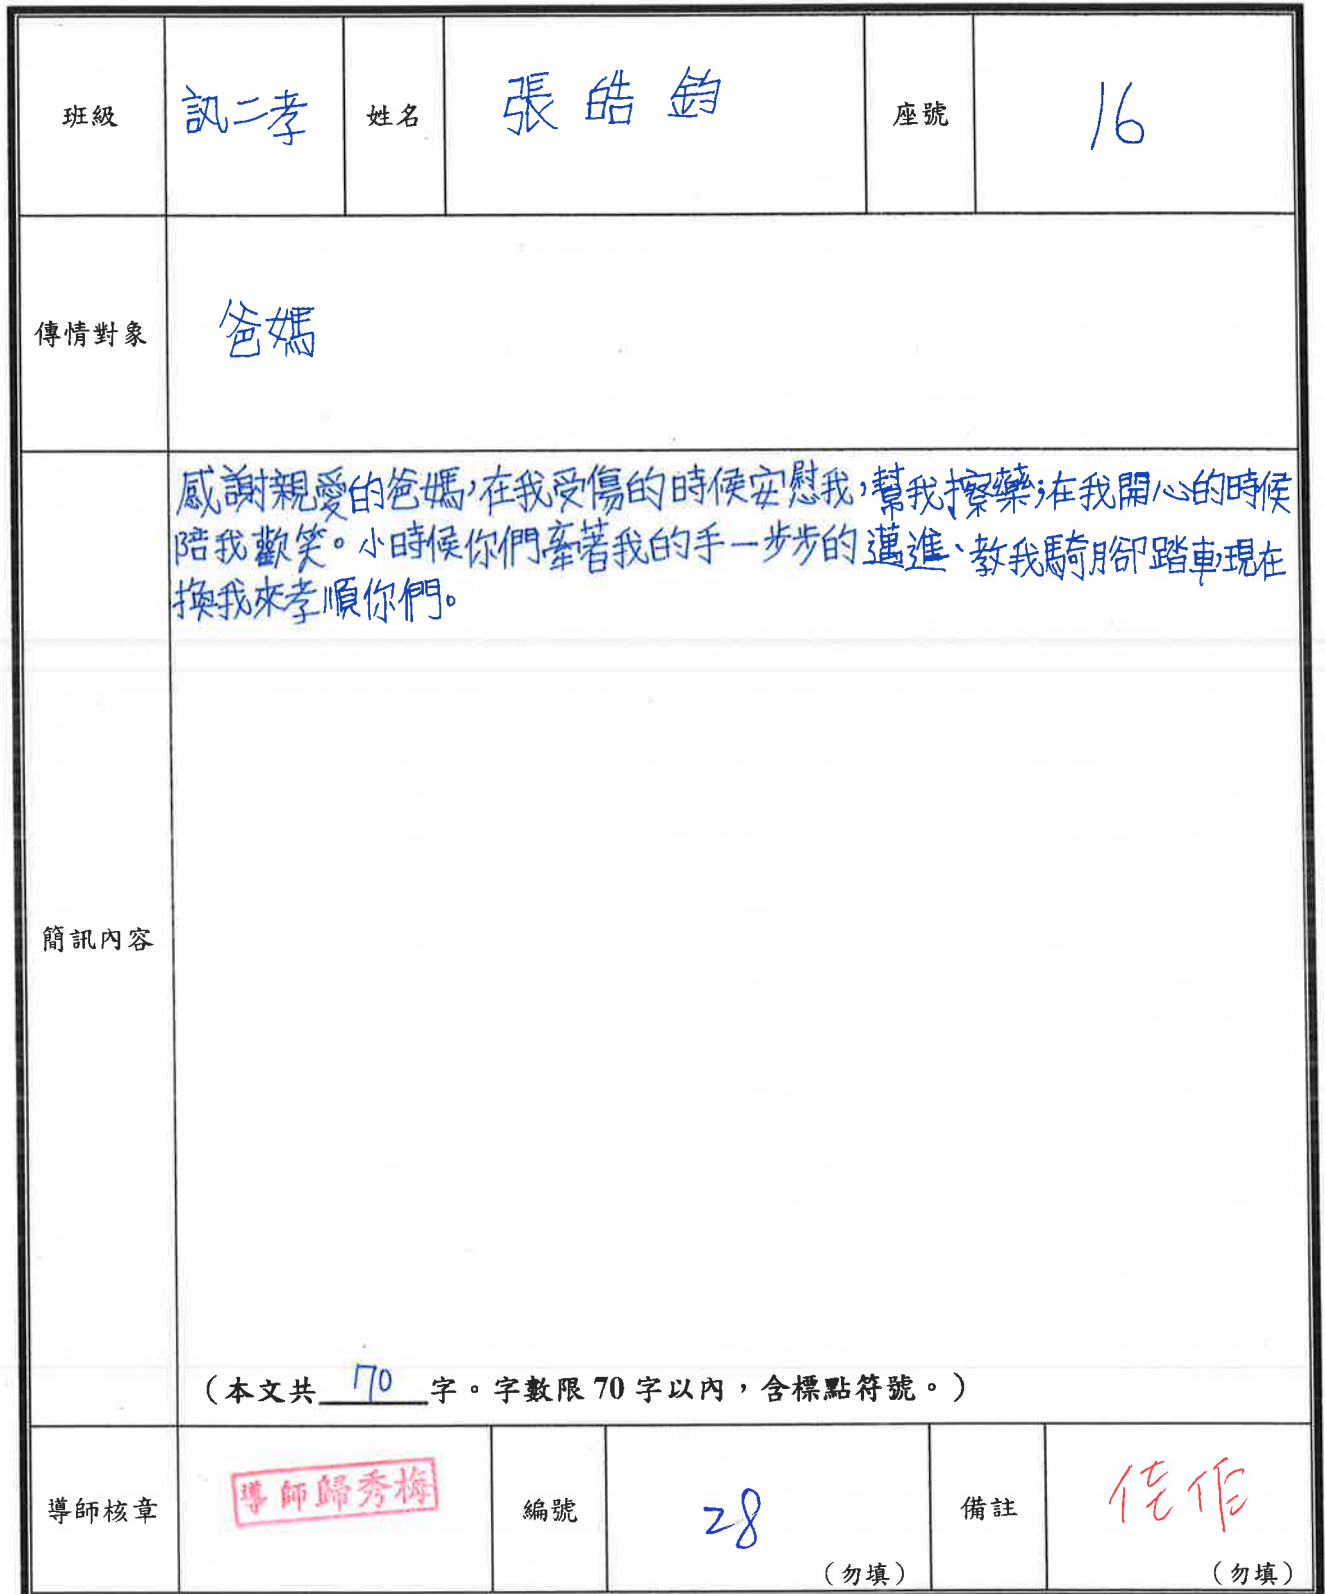 班級 訊二孝 姓名 張皓鈞 座號 16
傳情對象 爸媽
感謝親愛的爸媽,在我受傷的時候安慰我,幫我擦藥;在我開心的時候
陪我歡笑。小時候你們牽著我的手一步步的邁進、教我騎腳踏車,現在
換我來孝順你們。
簡訊內容
(本文共 70 字。字數限 70 字以內,含標點符號。)
導師核章 導師歸秀梅 編號 28 (勿填) 備註 佳作 (勿填)